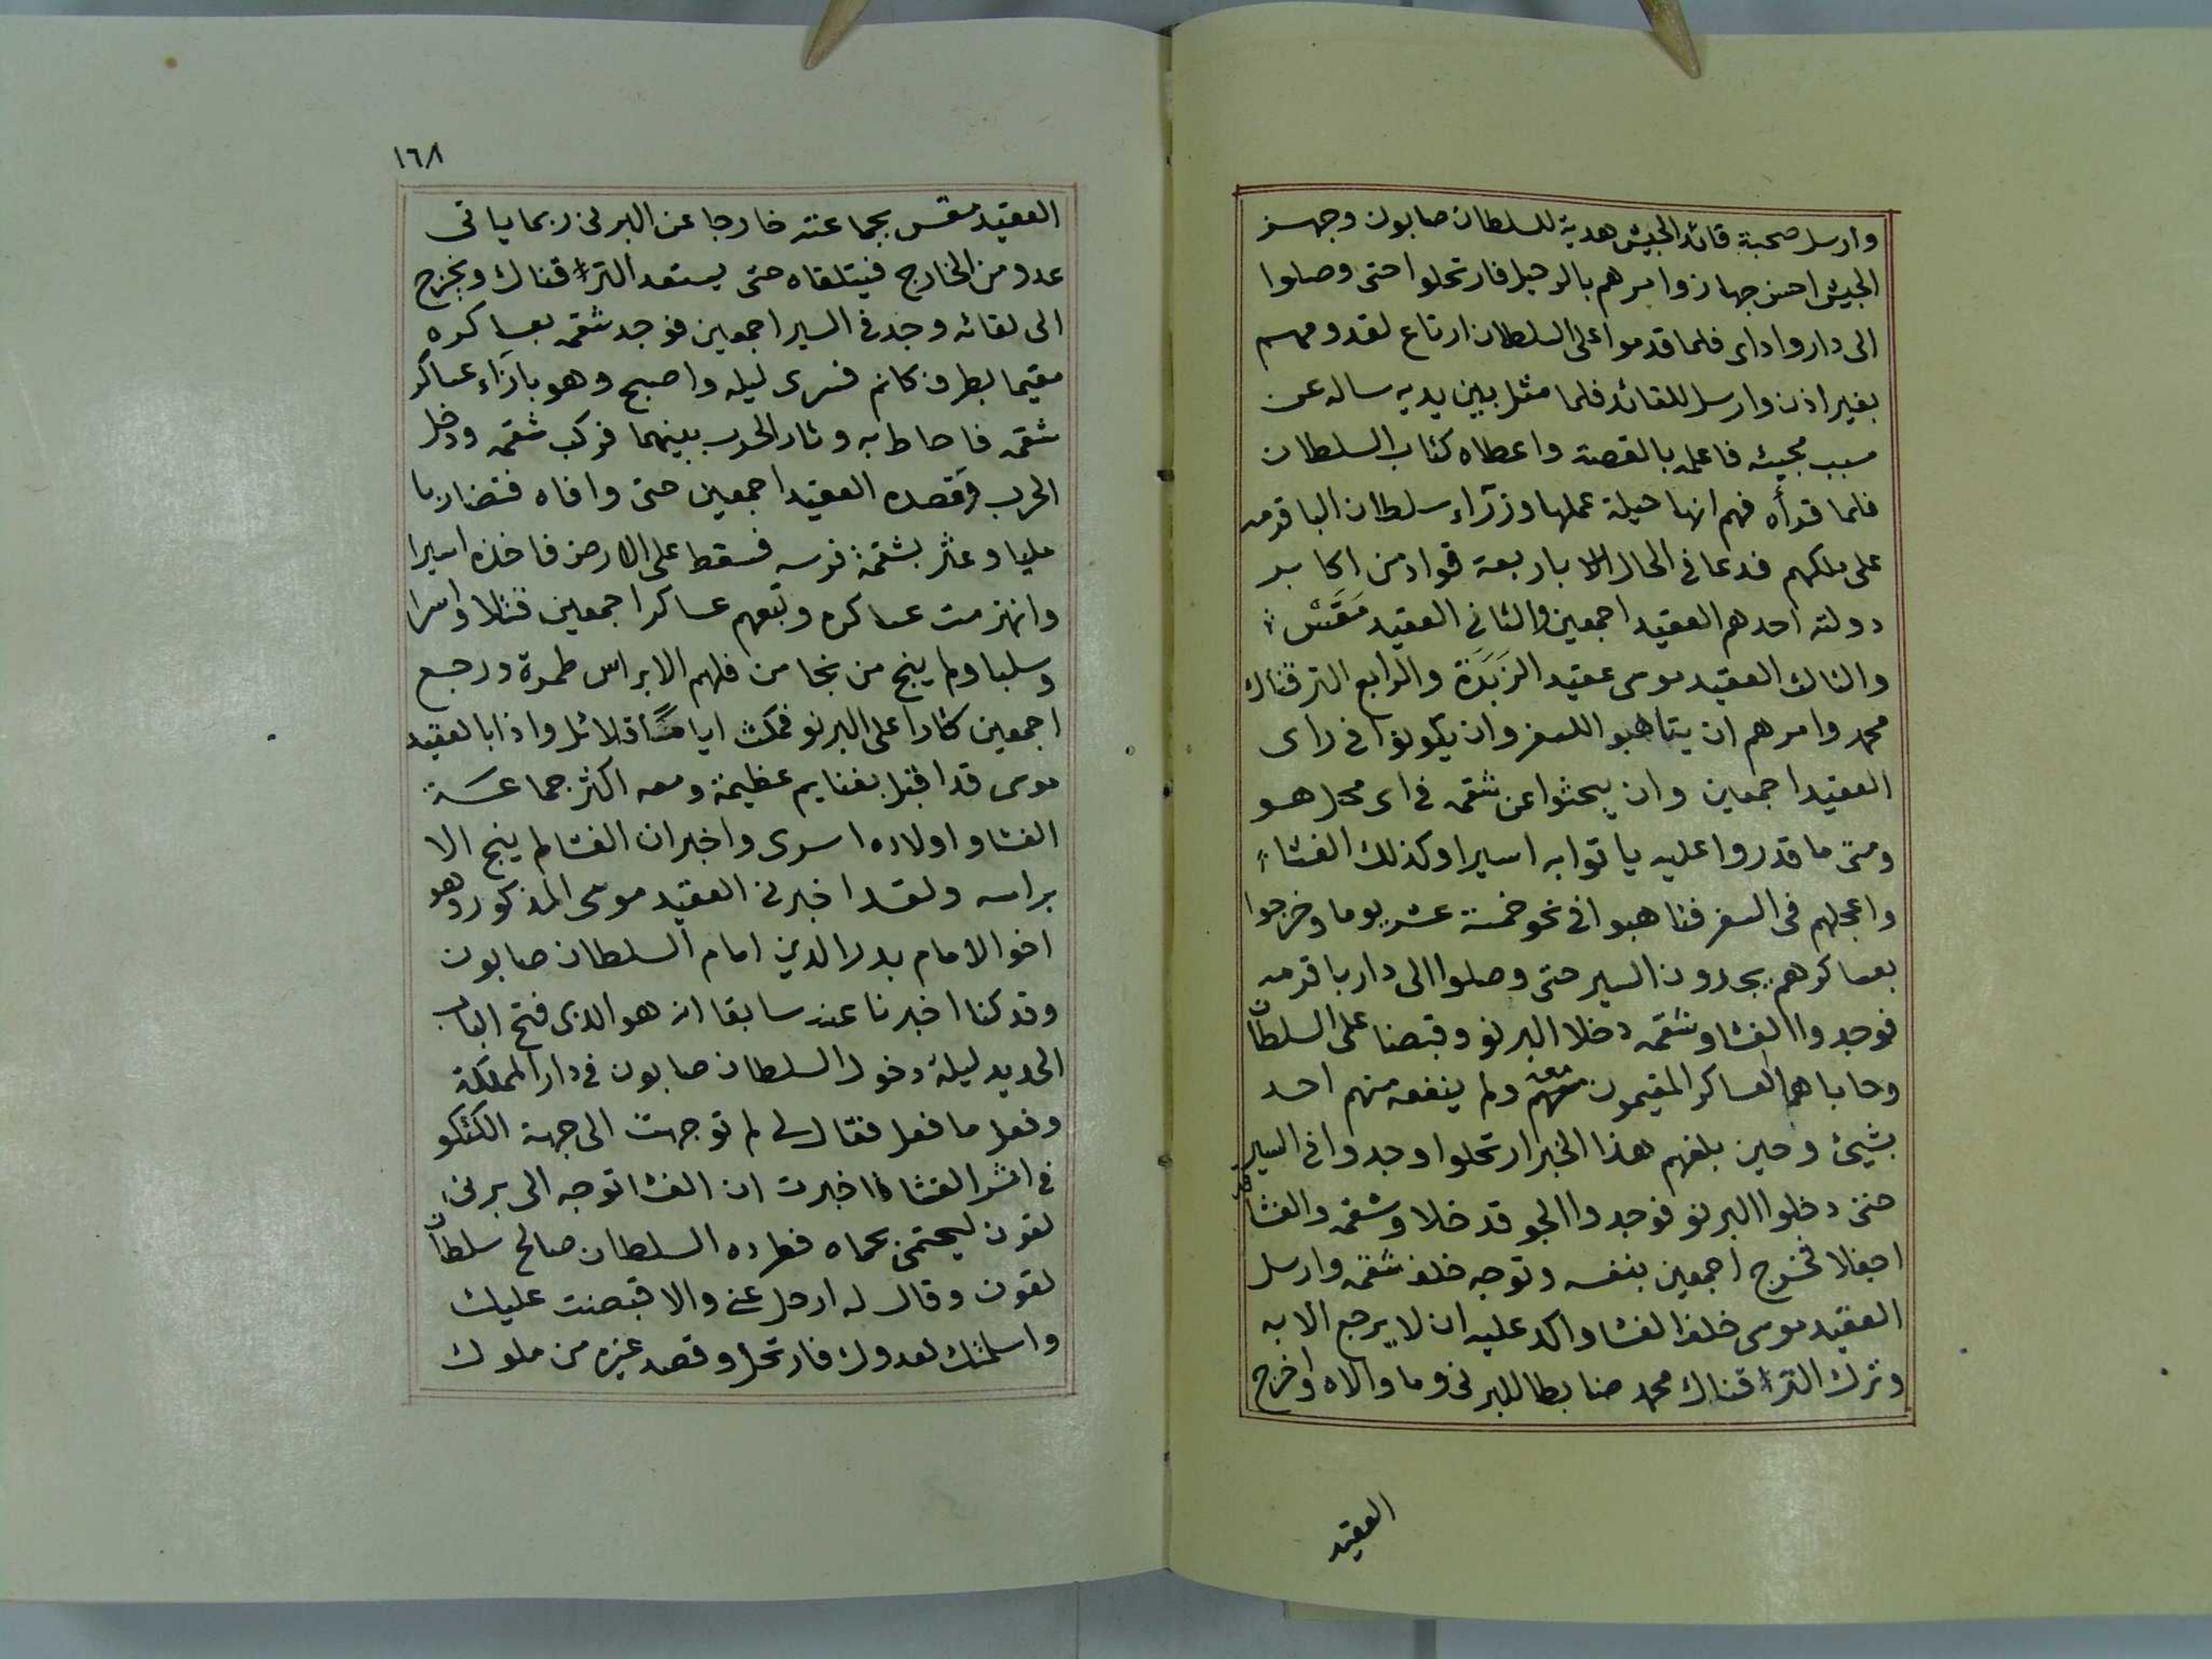 وارسل صحبة قائد الجيش هدية للسلطان صابون وجهز
الجيش احسن جهاز وامرهم بالرحيل فارتحلوا حتى وصلوا
الى دار واداى فلما قدموا على السلطان ارتاع لقدومهم
بغير اذن وارسل للقائد فلما مثل بين يديه ساله عن
سبب مجيئه فاعلمه بالقصة واعطاه كتاب السلطان
فلما قرأه فهم انها حيلة عملها وزرآء سلطان الباقرمه
على ملكهم فدعا فى الحال باربعة قواد من اكابر
دولته احدهم العقيد اجمعين والثانى العقيد مَقَسْ
والثالث العقيد موسى عقيد الزَبَدَة والرابع الترقناك
محمد وامرهم ان يتاهبوا للسفر وان يكونوا فى راى
العقيد اجمعين وان يبحثوا عن شقمه فى اى محل هو
ومتى ما قدروا عليه ياتوا به اسيرا وكذلك الفشا
واعجلهم فى السفر فتاهبوا فى نحو خمسة عشر يوما وخرجوا
بعساكرهم يجدون السير حتى وصلوا الى دار باقرمه
فوجدوا الفشا وشقمه دخلا البرنو وقبضا على السلطان
وحاباهما العساكر المقيمون معه ولم ينفعه منهم احد
بشيئ وحين بلغهم هذا الخبر ارتحلوا وجدوا فى السير
حتى دخلوا البرنو فوجدوا الجو قد خلا وشقمه والفشا قد
اجفلا فخرج اجمعين بنفسه وتوجه خلف شقمه وارسل
العقيد موسى خلف الفشا واكد عليه ان لا يرجع الا به
وترك الترقناك محمد ضابطا للبرنى وما والاه واخرج
العقيد
١٦٨
العقيد مقس بجماعته خارجا عن البرنى ربما ياتى
عدو من الخارج فيتلقاه حتى يستعد الترقناك ويخرج
الى لقائه وجد فى السير اجمعين فوجد شقمه بعساكره
مقيما بطرف كانم فسرى ليله واصبح وهو بازآء عساكر
شقمه فاحاط به وثار الحرب بينهما فركب شقمه ودخل
الحرب وقصده العقيد اجمعين حتى وافاه فتضاربا
مليا وعثر بشقمة فرسه فسقط على الارض فاخذه اسيرا
وانهزمت عساكره وتبعهم عساكر اجمعين قتلا واسرا
وسلبا ولم ينج من نجا من فلهم الا براس طمرة ورجع
اجمعين كارا على البرنو فمكث اياما قلائل واذا بالعقيد
موسى قد اقبل بغنايم عظيمة ومعه اكثر جماعة
الفشا واولاده اسرى واخبر ان الفشا لم ينج الا
براسه ولقد اخبرنى العقيد موسى المذكور وهو
اخو الامام بدر الدين امام السلطان صابون
وقد كنا اخبرنا عنه سابقا انه هو الذى فتح الباب
الحديد ليلة دخول السلطان صابون فى دار المملكة
وفعل ما فعل فقال لى لم توجهت الى جهة الكتكو
فى اثر الفشا اخبرت ان الفشا توجه الى برنى
لقون ليحتمى بحماه فطرده السلطان صالح سلطان
لقون وقال له ارحل عنى والا قبضت عليك
واسلمتك لعدوك فارتحل وقصد غيره من ملوك